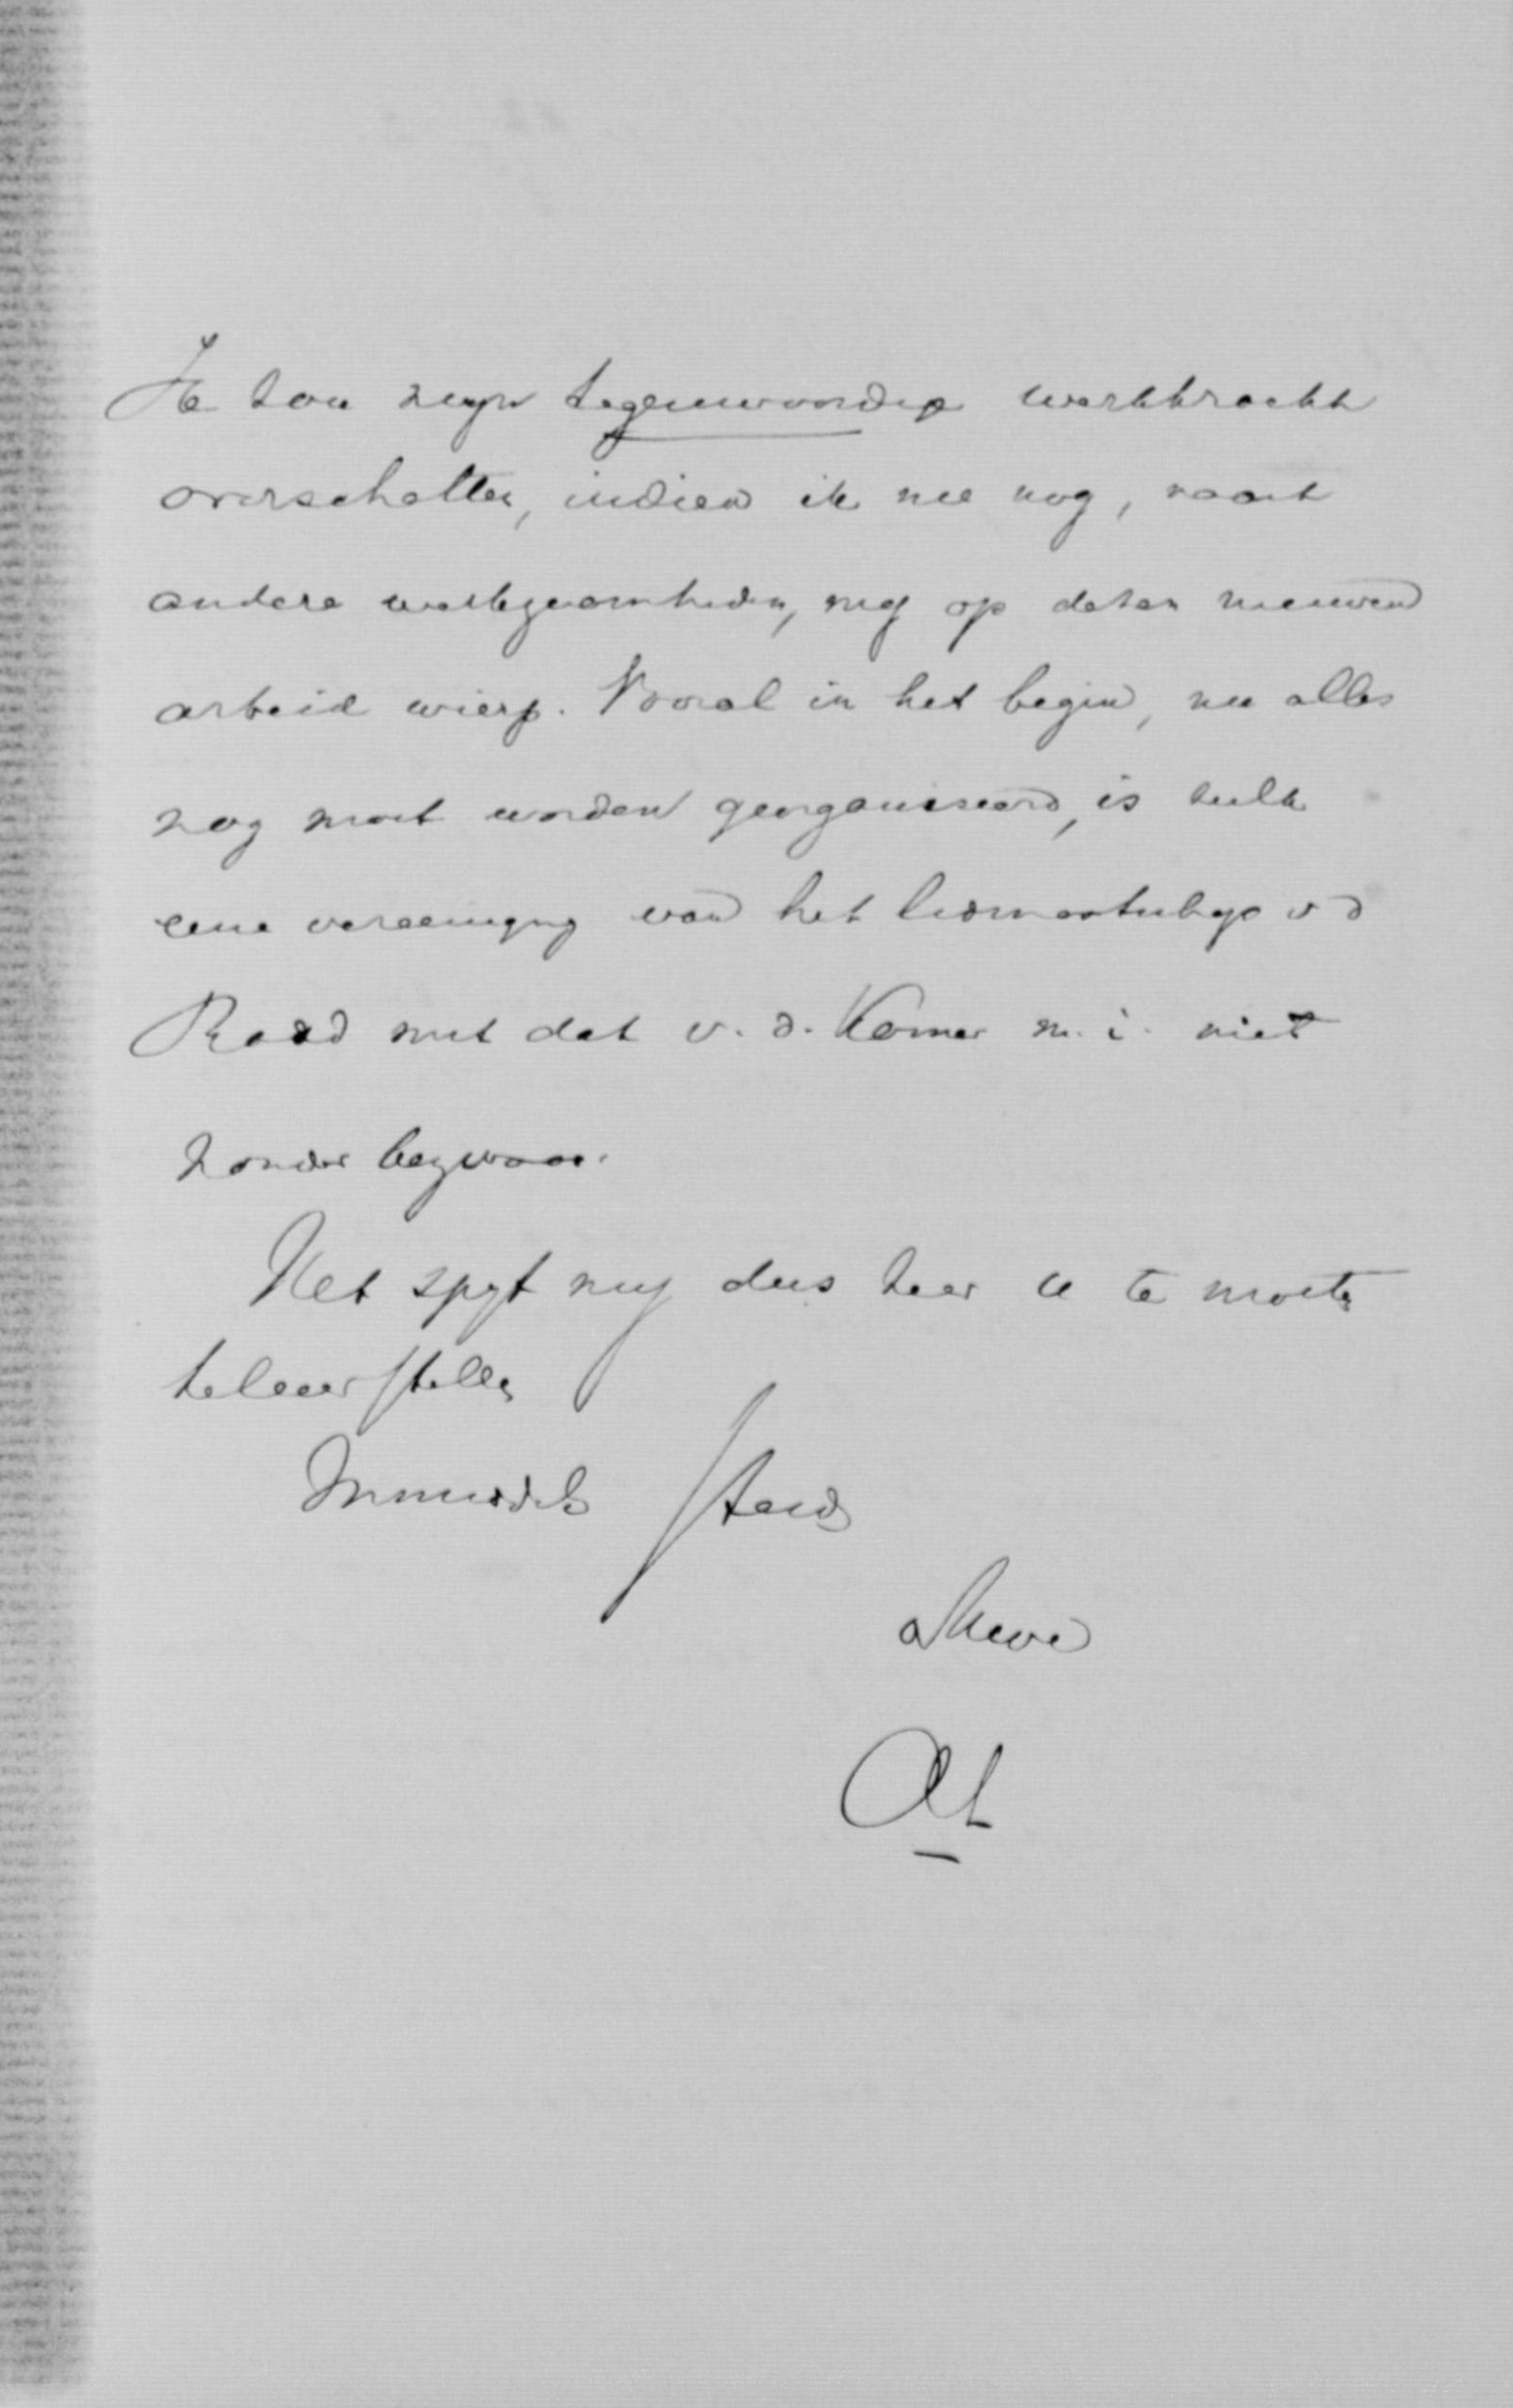 Ik zou mijn tegenwoordige werkkracht
overschatten, indien ik nu nog, naast
andere werkzaamheden, mij op dezen nieuwen
arbeid wierp. Vooral in het begin, nu alles
nog moet worden georganiseerd, is zulk
eene vereeniging van het lidmaatschap v d
Raad met dat v. d. Kamer m. i. niet
zonder bezwaar.
Het spijt mij dus zeer u te moeten
teleurstellen
Inmiddels steeds